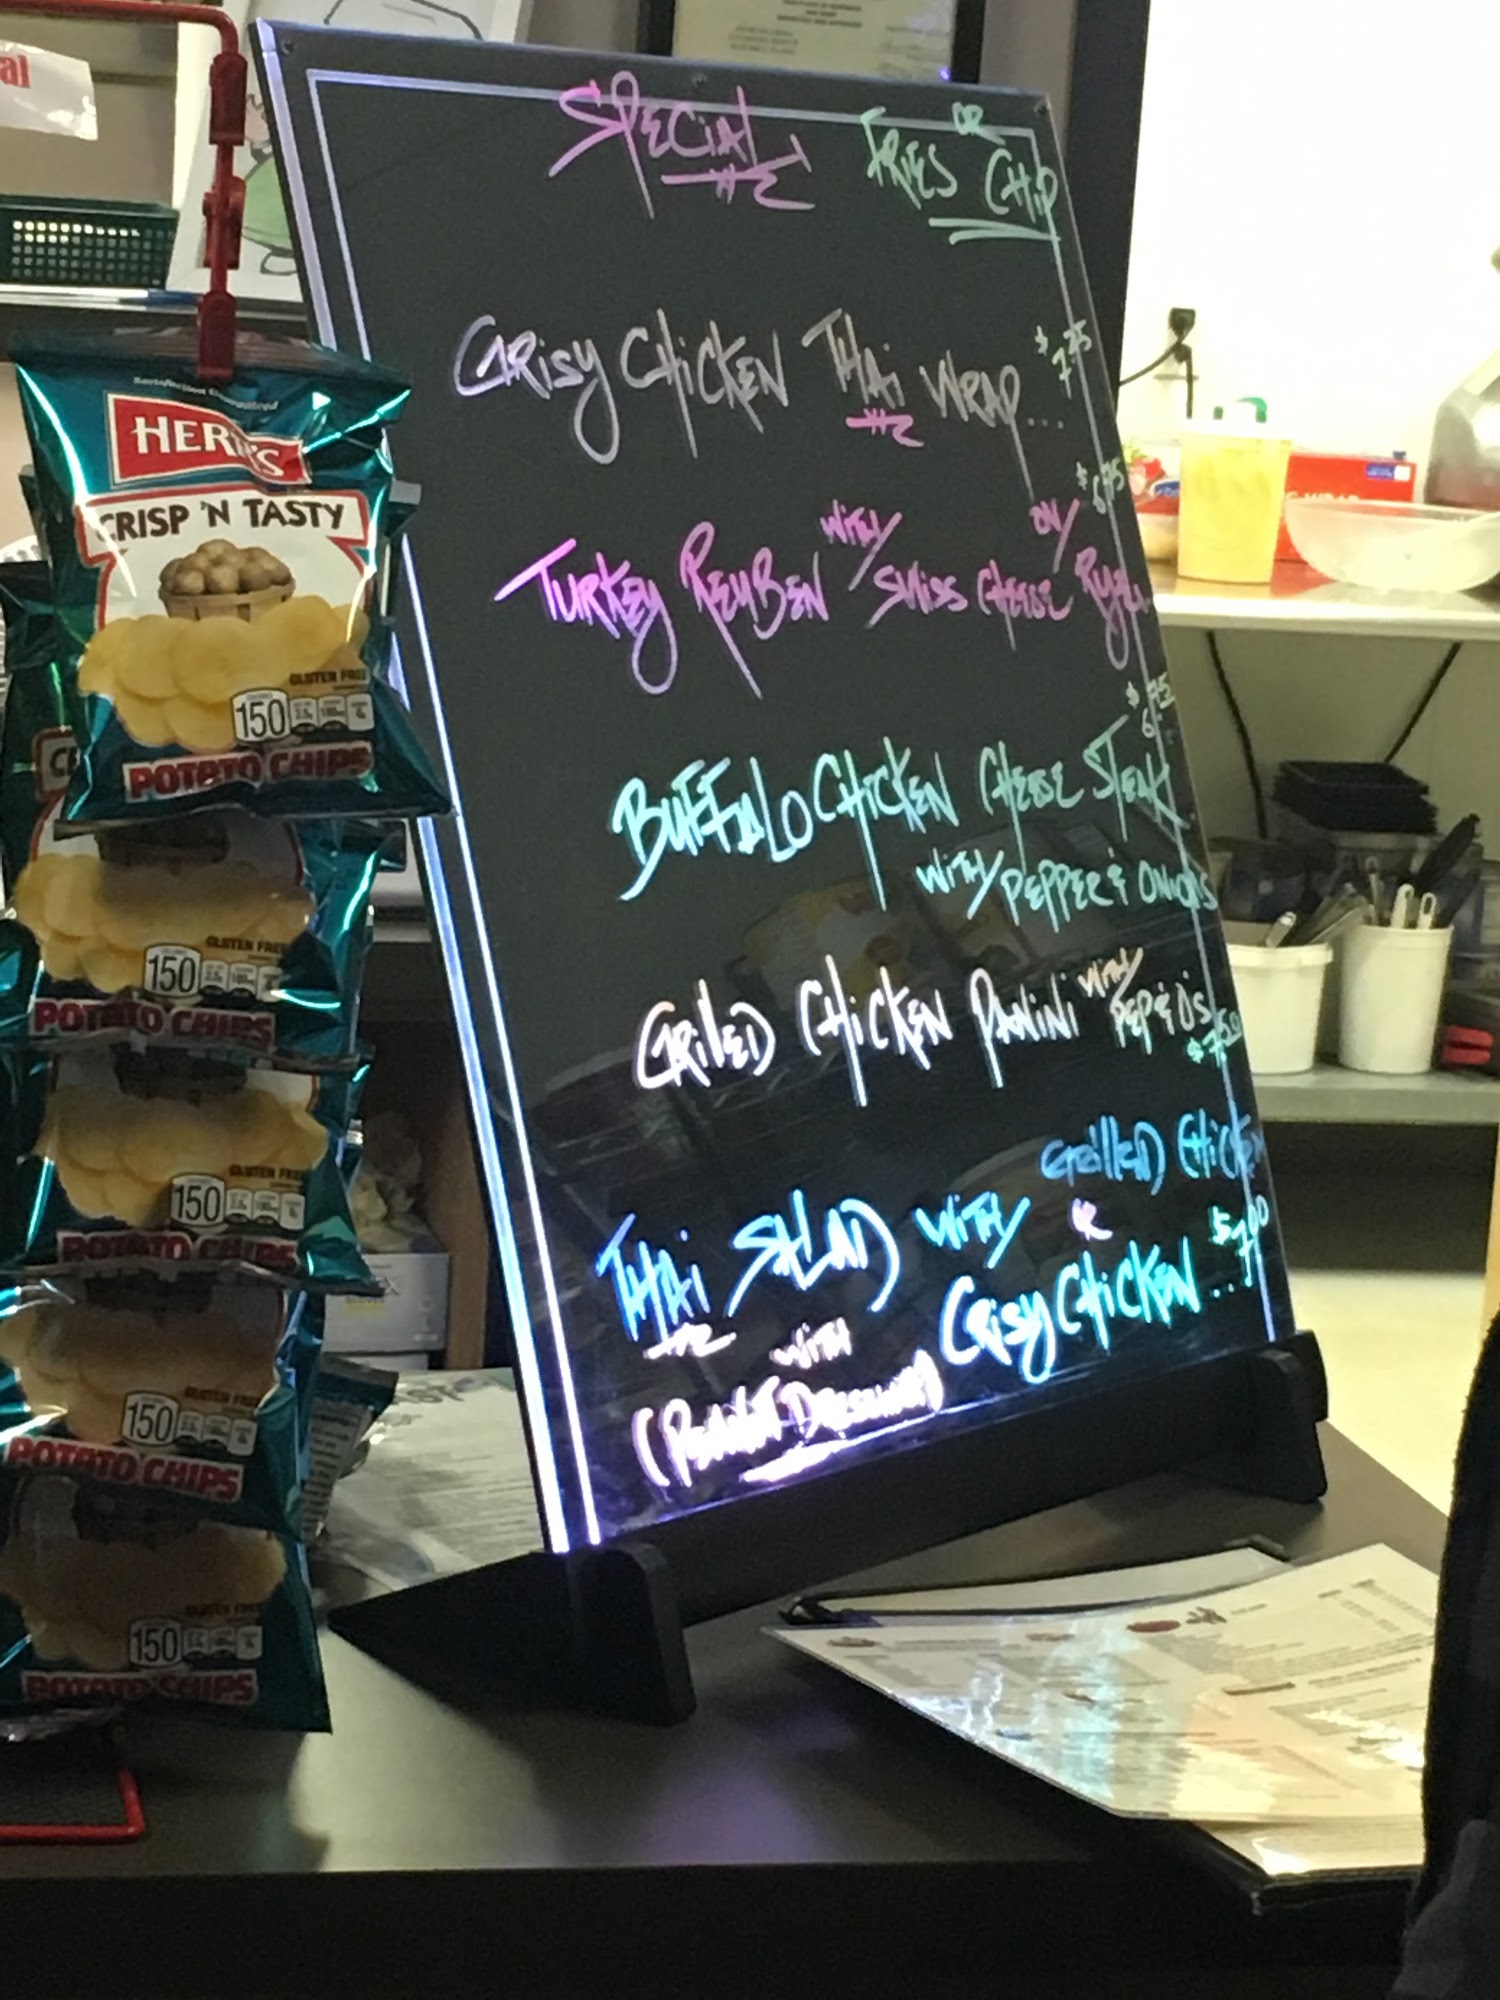 SPECIAL
FRIES OR CHIP
CRISY CHICKEN THAI WRAP... $7.75
TURKEY REUBEN WITH SWISS CHEESE ON $6.75
BUFFALO CHICKEN CHEESE STEAK $6.75
WITH PEPPER & ONIONS
GRILLED CHICKEN PANINI WITH PEP & O'S
$7.50
GRILLED CHICKEN
THAI SALAD WITH OR CRISY CHICKEN... $7.00
WITH
(PEANUT DRESSING)
al
Satisfaction Guaranteed
HERR'S
CRISP 'N TASTY
GLUTEN FREE
150
POTATO CHIPS
GLUTEN FREE
150
POTATO CHIPS
GLUTEN FREE
150
POTATO CHIPS
GLUTEN FREE
150
POTATO CHIPS
GLUTEN FREE
150
POTATO CHIPS